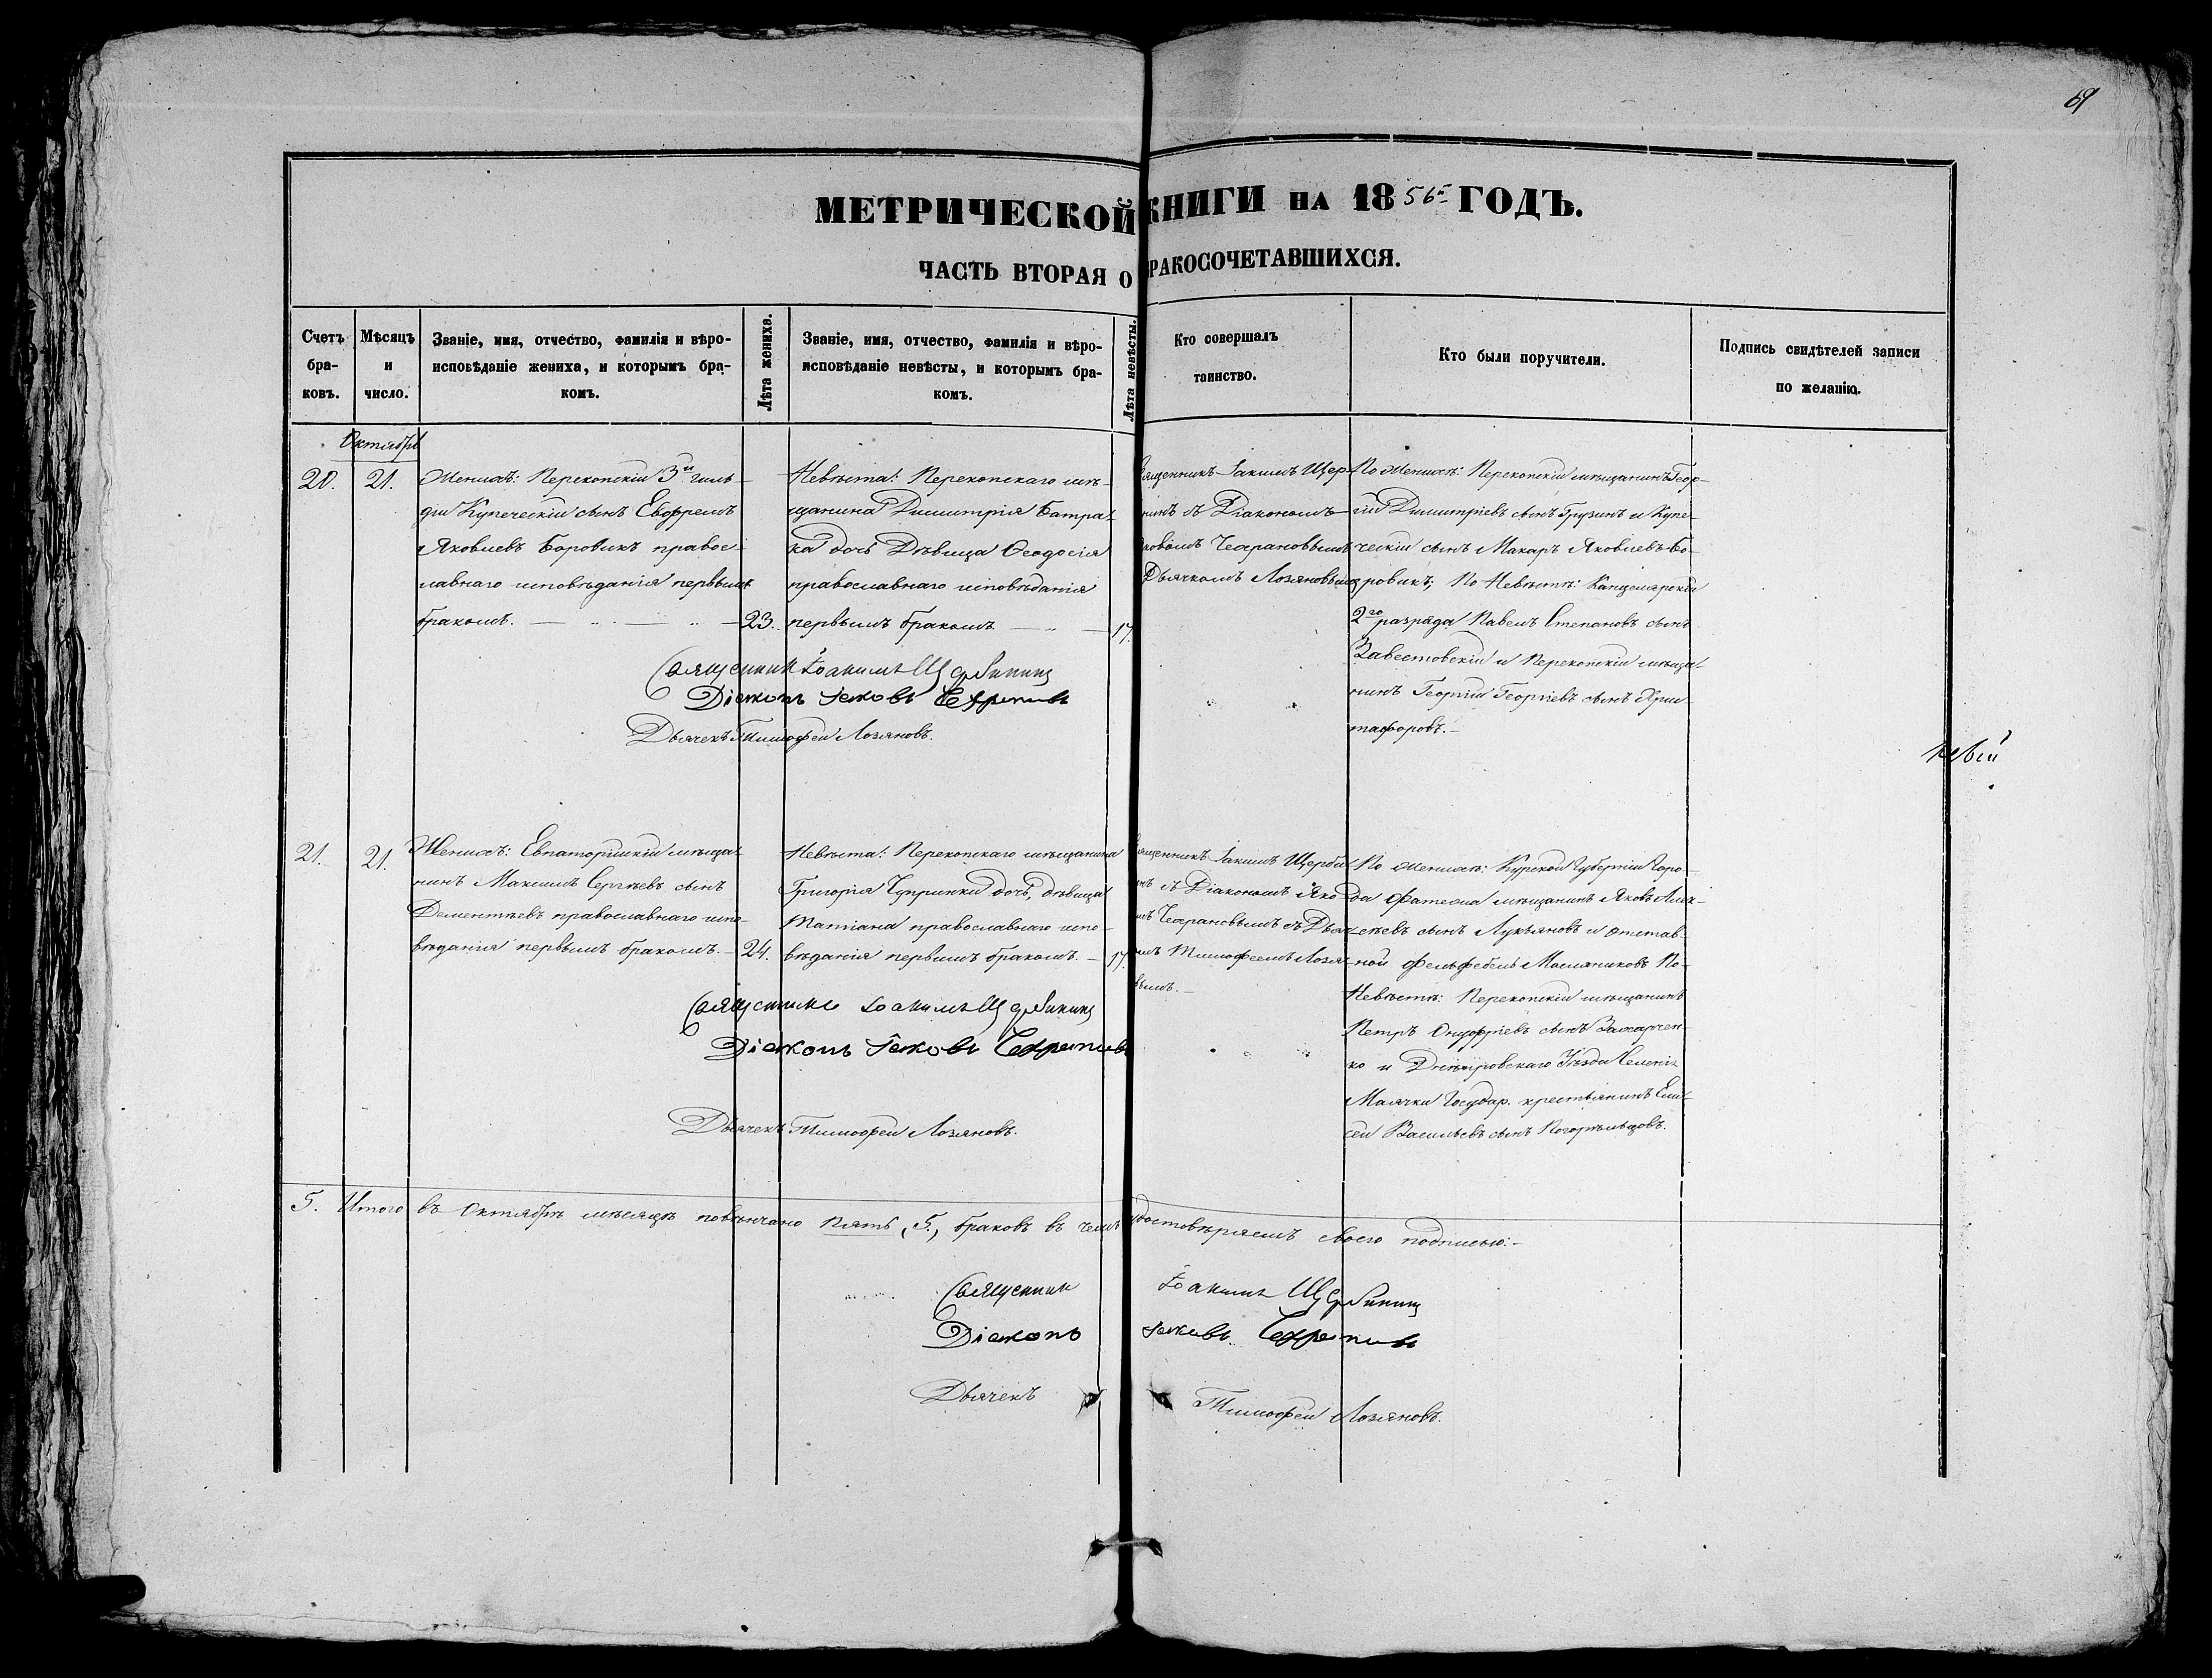 69
МЕТРИЧЕСКОЙ КНИГИ НА 1856й ГОДЪ.
ЧАСТЬ ВТОРАЯ О РАКОСОЧЕТАВШИХСЯ.
Счетъ бра-ковъ.
Мѣсяцъ и число.
Званіе, имя, отчество, фамилія и вѣро-
исповѣданіе жениха, и которымъ бра-
комъ.
Лѣта жениха.
Званіе, имя, отчество, фамилія и вѣро-
исповѣданіе невѣсты, и которымъ бра-
комъ.
Лѣта невѣсты.
Кто совершалъ
таинство.
Кто были поручители.
Подпись свидѣтелей записи
по желанію.
Октябрь
20.
21.
Женихъ: Перекопскій 3й гиль-
діи Купеческій сынъ Евфремъ
Яковлевъ Боровикъ правос-
лавнаго исповѣданія первымъ
бракомъ.
23.
Невѣста: Перекопскаго мѣ-
щанина Димитрія Батра-
ка дочь Дѣвица Ѳеодосія
православнаго исповѣданія
первымъ бракомъ.
17.
ященникъ Іакимъ Щер-
нинъ съ Діакономъ
ковомъ Чехрановымъ
Дьячкомъ Лозяновым
По Женихѣ: Перекопскій мѣщанинъ Геор-
гій Димитріевъ сынъ Грузинъ и Купе-
ческій сынъ Макаръ Яковлевъ Бо-
ровикъ; По Невѣстѣ: Канцелярскій
2го разряда Павелъ Степановъ сынъ
Завестовскій и Перекопскій мѣща-
нинъ Георгій Георгіевъ сынъ Хрис-
тафоровъ.
Священникъ Іоакимъ Щербинин
Діаконъ Іаковъ Чехрановъ
Дьячекъ Тимофей Лозяновъ.
21.
21.
Женихъ: Евпаторійскій мѣща-
нинъ Максимъ Сергѣевъ сынъ
Дементьевъ православнаго испо-
вѣданія первымъ бракомъ.
24.
Невѣста: Перекопскаго мѣщанина
Григорія Чупринки дочь, дѣвица
Татіана православнаго испо-
вѣданія первымъ бракомъ.
17.
ященникъ Іакимъ Щерби-
нъ съ Діакономъ Яко-
мъ Чехрановымъ съ Дьяч-
мъ Тимофеемъ Лозя-
вымъ.
По Женихѣ: Курской Губерніи Горо-
да Фатежа мѣщанинъ Яковъ Алек-
сѣевъ сынъ Лукьяновъ и отстав-
ной Фельфебель Масляниковъ По-
Невѣстѣ: Перекопскій мѣщанинъ
Петръ Онуфріевъ сынъ Захарчен-
ко и Днѣпровскаго Уѣзда Селенія
Маячки Государ. крестьянинъ Ели-
сей Васильевъ сынъ Погорѣльцовъ.
Священникъ Іоакимъ Щербинин
Діаконъ Іаковъ Чехрановъ
Дьячекъ Тимофей Лозяновъ.
5. Итого въ Октябрѣ мѣсяцѣ повѣнчано Пять, 5, браковъ въ чемъ удостовѣряемъ своею подписью:
Священник Іоакимъ Щербинин
Діаконъ Іаковъ Чехрановъ
Дьячекъ Тимофей Лозяновъ.